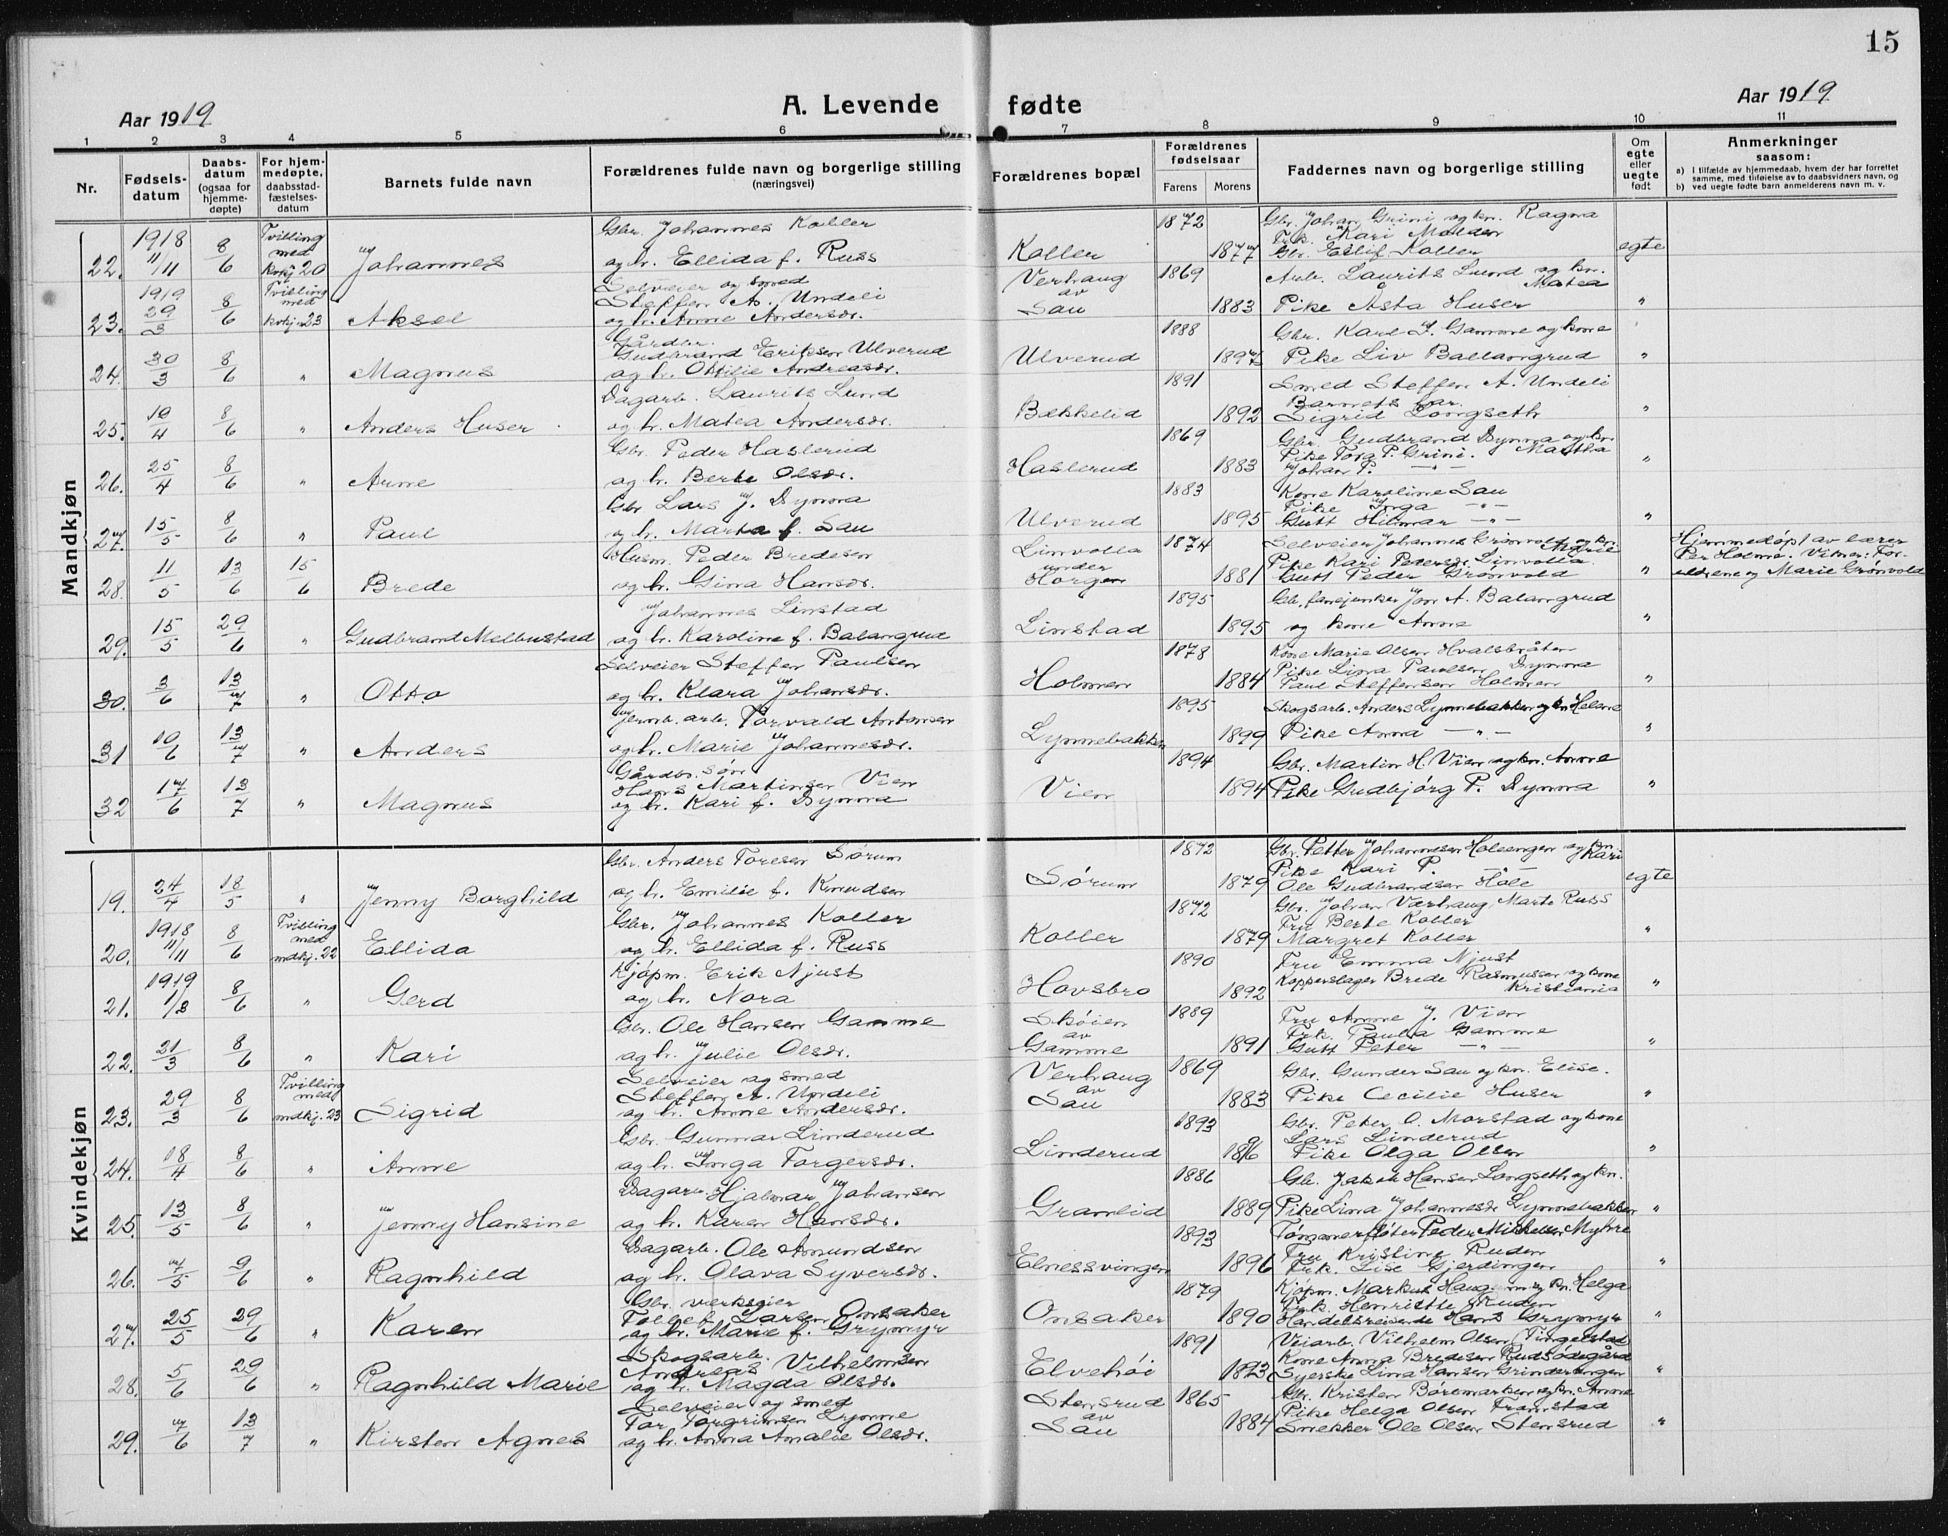 15
Aar 1919
A. Levende fødte
Aar 1919
1 2 3 4 5 6 7 8 9 10 11
Nr.
Fødsels-
datum
Daabs-
datum
(ogsaa for
hjemme-
døpte)
For hjem-
medøpte,
daabsstad-
fæstelses-
datum
Barnets fulde navn
Forældrenes fulde navn og borgerlige stilling
(næringsvei)
Forældrenes bopæl
Forældrenes
fødselsaar
Farens Morens
Faddernes navn og borgerlige stilling
Om
egte
eller
uegte
født
Anmerkninger
saasom:
a) I tilfælde av hjemmedaab, hvem der har forrettet
samme, med tilføielse av to daabsvidners navn, og
b) ved uegte fødte barn anmelderens navn m. v.
Mandkjøn
22. 1918 11/11 8/6 Tvilling med kvkj 20 Johannes
Gbr. Johannes Koller
og h. Ellida f. Russ
Koller 1872 1877
Gbr. Johan Grini og kn. Ragna
Frk. Kari Molden
Gbr. Eilif Koller
egte
23. 1919 29/3 8/6 Tvilling med kvkj. 23 Aksel
Selveier og smed
Steffen A. Undeli
og h. Anne Andersdr.
Verhaug
av
Sau
1869 1883
Arb. Laurits Lund og kn.
Matea
Pike Åsta Huser
"
24. 30/3 8/6 " Magnus
Gårdbr.
Gudbrand Eriksen Ulverud
og h. Otilie Andreasdr.
Ulverud 1888 1897
Gbr. Karl L. Gamme og kone
Pike Liv Ballangrud
"
25. 19/4 8/6 " Anders Huser
Dagarb. Laurits Lund
og h. Matea Andersdr.
Bækkelid 1891 1892
Smed Steffen A. Undeli
Barnets far.
Sigrid Longseth
"
26. 25/4 8/6 " Arne
Gbr. Peder Haslerud
og h. Berte Olsdr.
Haslerud 1869 1883
Gbr. Gudbrand Dynna og kn
Martha
Pike Tora P. Grini.
Johan P. — " —
"
27. 15/5 8/6 " Paul
Gbr Lars J. Dynna
og h. Marta f. Sau
Ulverud 1883 1895
Kone Karoline Sau
Pike Inga — " —
Gutt Hilmar — " —
"
28. 11/5 13/6 15/6 Brede
Husm. Peder Bredesen
og h. Gina Hansdr.
Linvolla
under
Horgen
1874 1881
Selveier Johannes Grønvold og kn.
Marie
Pike Kari Pedersdr. Linvolla
Gutt Peder Grønvold
"
Hjemmedøpt av lærer
Per Holme. Vitner: For-
ældrene og Marie Grønvold
29. 15/5 29/6 " Gudbrand Melbustad
Johannes Linstad
og h. Karoline f. Balangrud
Linstad 1895 1895
Gb. fanejunker Jon A. Balangrud
og kone Anne
"
30. 3/6 13/7 " Otto
Selveier Steffen Paulsen
og h. Klara Johansdr.
Holmen 1878 1884
Kone Marie Olsen Hvalsbråten
Pike Lina Paulsen Dynna
Paul Steffensen Holmen
"
31 10/6 13/7 " Anders
Jernb. arb. Torvald Antonsen
og h. Marie Johannesdr.
Lynnebakken 1895 1899
Skogsarb. Anders Lynnebakken og kn Helene
Pike Anna — " —
"
32 17/6 13/7 " Magnus
Gårdbr. søn
Hans Martinsen Vien
og h. Kari f. Dynna
Vien 1894 1894
Gbr. Martin H. Vien og kn. Anne
Pike Gudbjørg P. Dynna
"
Kvindekjøn
19. 24/4 18/5 " Jenny Borghild
Gbr. Anders Toresen Sørum
og h. Emilie f. Knudsen
Sørum 1872 1879
Gbr. Petter Johannesen Holeengen og kn
Kari
Pike Kari P. — " —
Ole Gudbrandsen Hole
egte
20. 1918 11/11 8/6 Tvilling med mdkj. 22 Ellida
Gbr. Johannes Koller
og h. Ellida f. Russ
Koller 1872 1879
Gbr. Johan Værhaug, Marte Russ
Fru Berte Koller
Margret Koller
"
21. 1919 1/3 8/6 " Gerd
Kjøpm. Erik Njust
og h. Nora
Hovsbro 1890 1892
Fru Emma Njust
Kopperslager Brede Rasmussen og kone
Kristiania
"
22. 21/3 8/6 " Kari
Gbr. Ole Hansen Gamme
og h. Julie Olsdr.
Skøien
av
Gamme
1889 1891
Fru Anne J. Vien
Frk. Paula Gamme
Gutt Peter — " —
"
23. 29/3 8/6 Tvilling med mdkj. 23 Sigrid
Selveier og smed
Steffen A. Undeli
og h. Anne Andersdr.
Verhaug
av
Sau
1869 1883
Gbr. Gunder Sau og kn. Elise.
Pike Cecilie Huser
"
24. 18/4 8/6 " Anne
Gbr. Gunnar Linderud
og h. Inga Torgersdr.
Linderud 1893 1896
Gbr. Peter O. Morstad og kone
Lars Linderud
Pike Olga Olsen
"
25. 13/5 8/6 " Jenny Hansine
Dagarb Hjalmar Johansen
og h. Karen Hansdr.
Granlid 1886 1889
Gb. Jakob Hansen Longseth og kn.
Pike Lina Johannesdr Lynnebakken
"
26. 7/5 9/6 " Ragnhild
Dagarb. Ole Amundsen
og h. Olava Syversdr.
Elnessvingen 1893 1896
Tømmerfløter Peder Mikkelsen Myhre
Fru Kristine Ruden
Frk. Lise Gjerdingen
"
27. 25/5 29/6 " Karen
Gbr. verkseier
Tollef Larsen Onsaker
og h. Marie f. Grymyr
Onsaker 1879 1890
Kjøpm. Markus Haugen og kn. Helga
Frk. Henriette Ruden
Handelsreisende Hans Grymyr
"
28. 5/6 29/6 " Ragnhild Marie
Skogsarb.
Andreas Vilhelmsen
og h. Magda Olsdr.
Elvehøi 1891 1893
Veiarb. Vilhelm Olsen Tingelstad
Kone Anna Bredesen Rudsødegård
Syerske Lina Hansen Grinderengen
"
29. 7/6 13/7 " Kirsten Agnes
Selveier og smed
Tor Torgrimsen Lynne
og h. Anna Amalie Olsdr.
Stensrud
av
Sau
1865 1884
Gbr. Kristen Børemarken og kn. Anne
Pike Helga Olsen Framstad
Snekker Ole Olsen Stensrud
"